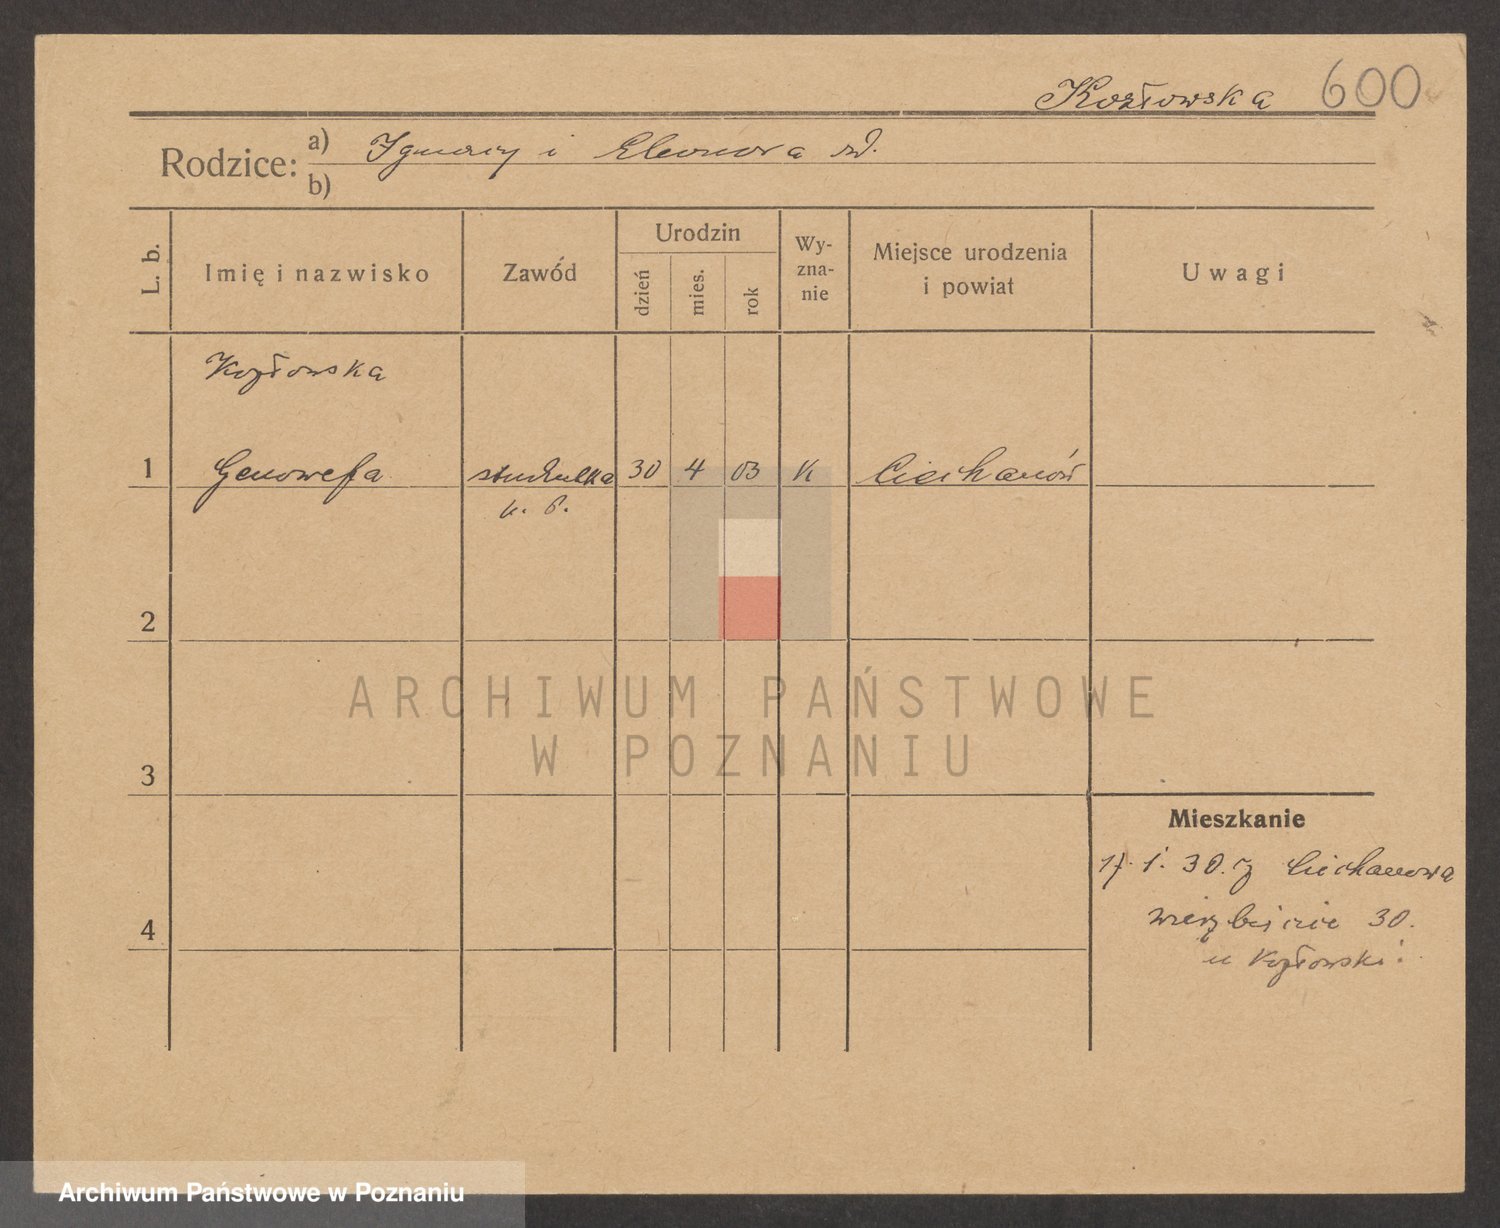 Kozłowska 600
Rodzice: a) Ignacy i Eleonora
b)
L. b.
Imię i nazwisko
Zawód
Urodzin
dzień
mies.
rok
Wy-
zna-
nie
Miejsce urodzenia
i powiat
Uwagi
Kozłowska
1 Genowefa studentka 30 4 03 K Ciechanów
2
ARCHIWUM PAŃSTWOWE
W POZNANIU
3
Mieszkanie
17. 1. 30. z Ciechanowa
4
Wierzbięcice 30.
u Kozłowski
Archiwum Państwowe w Poznaniu